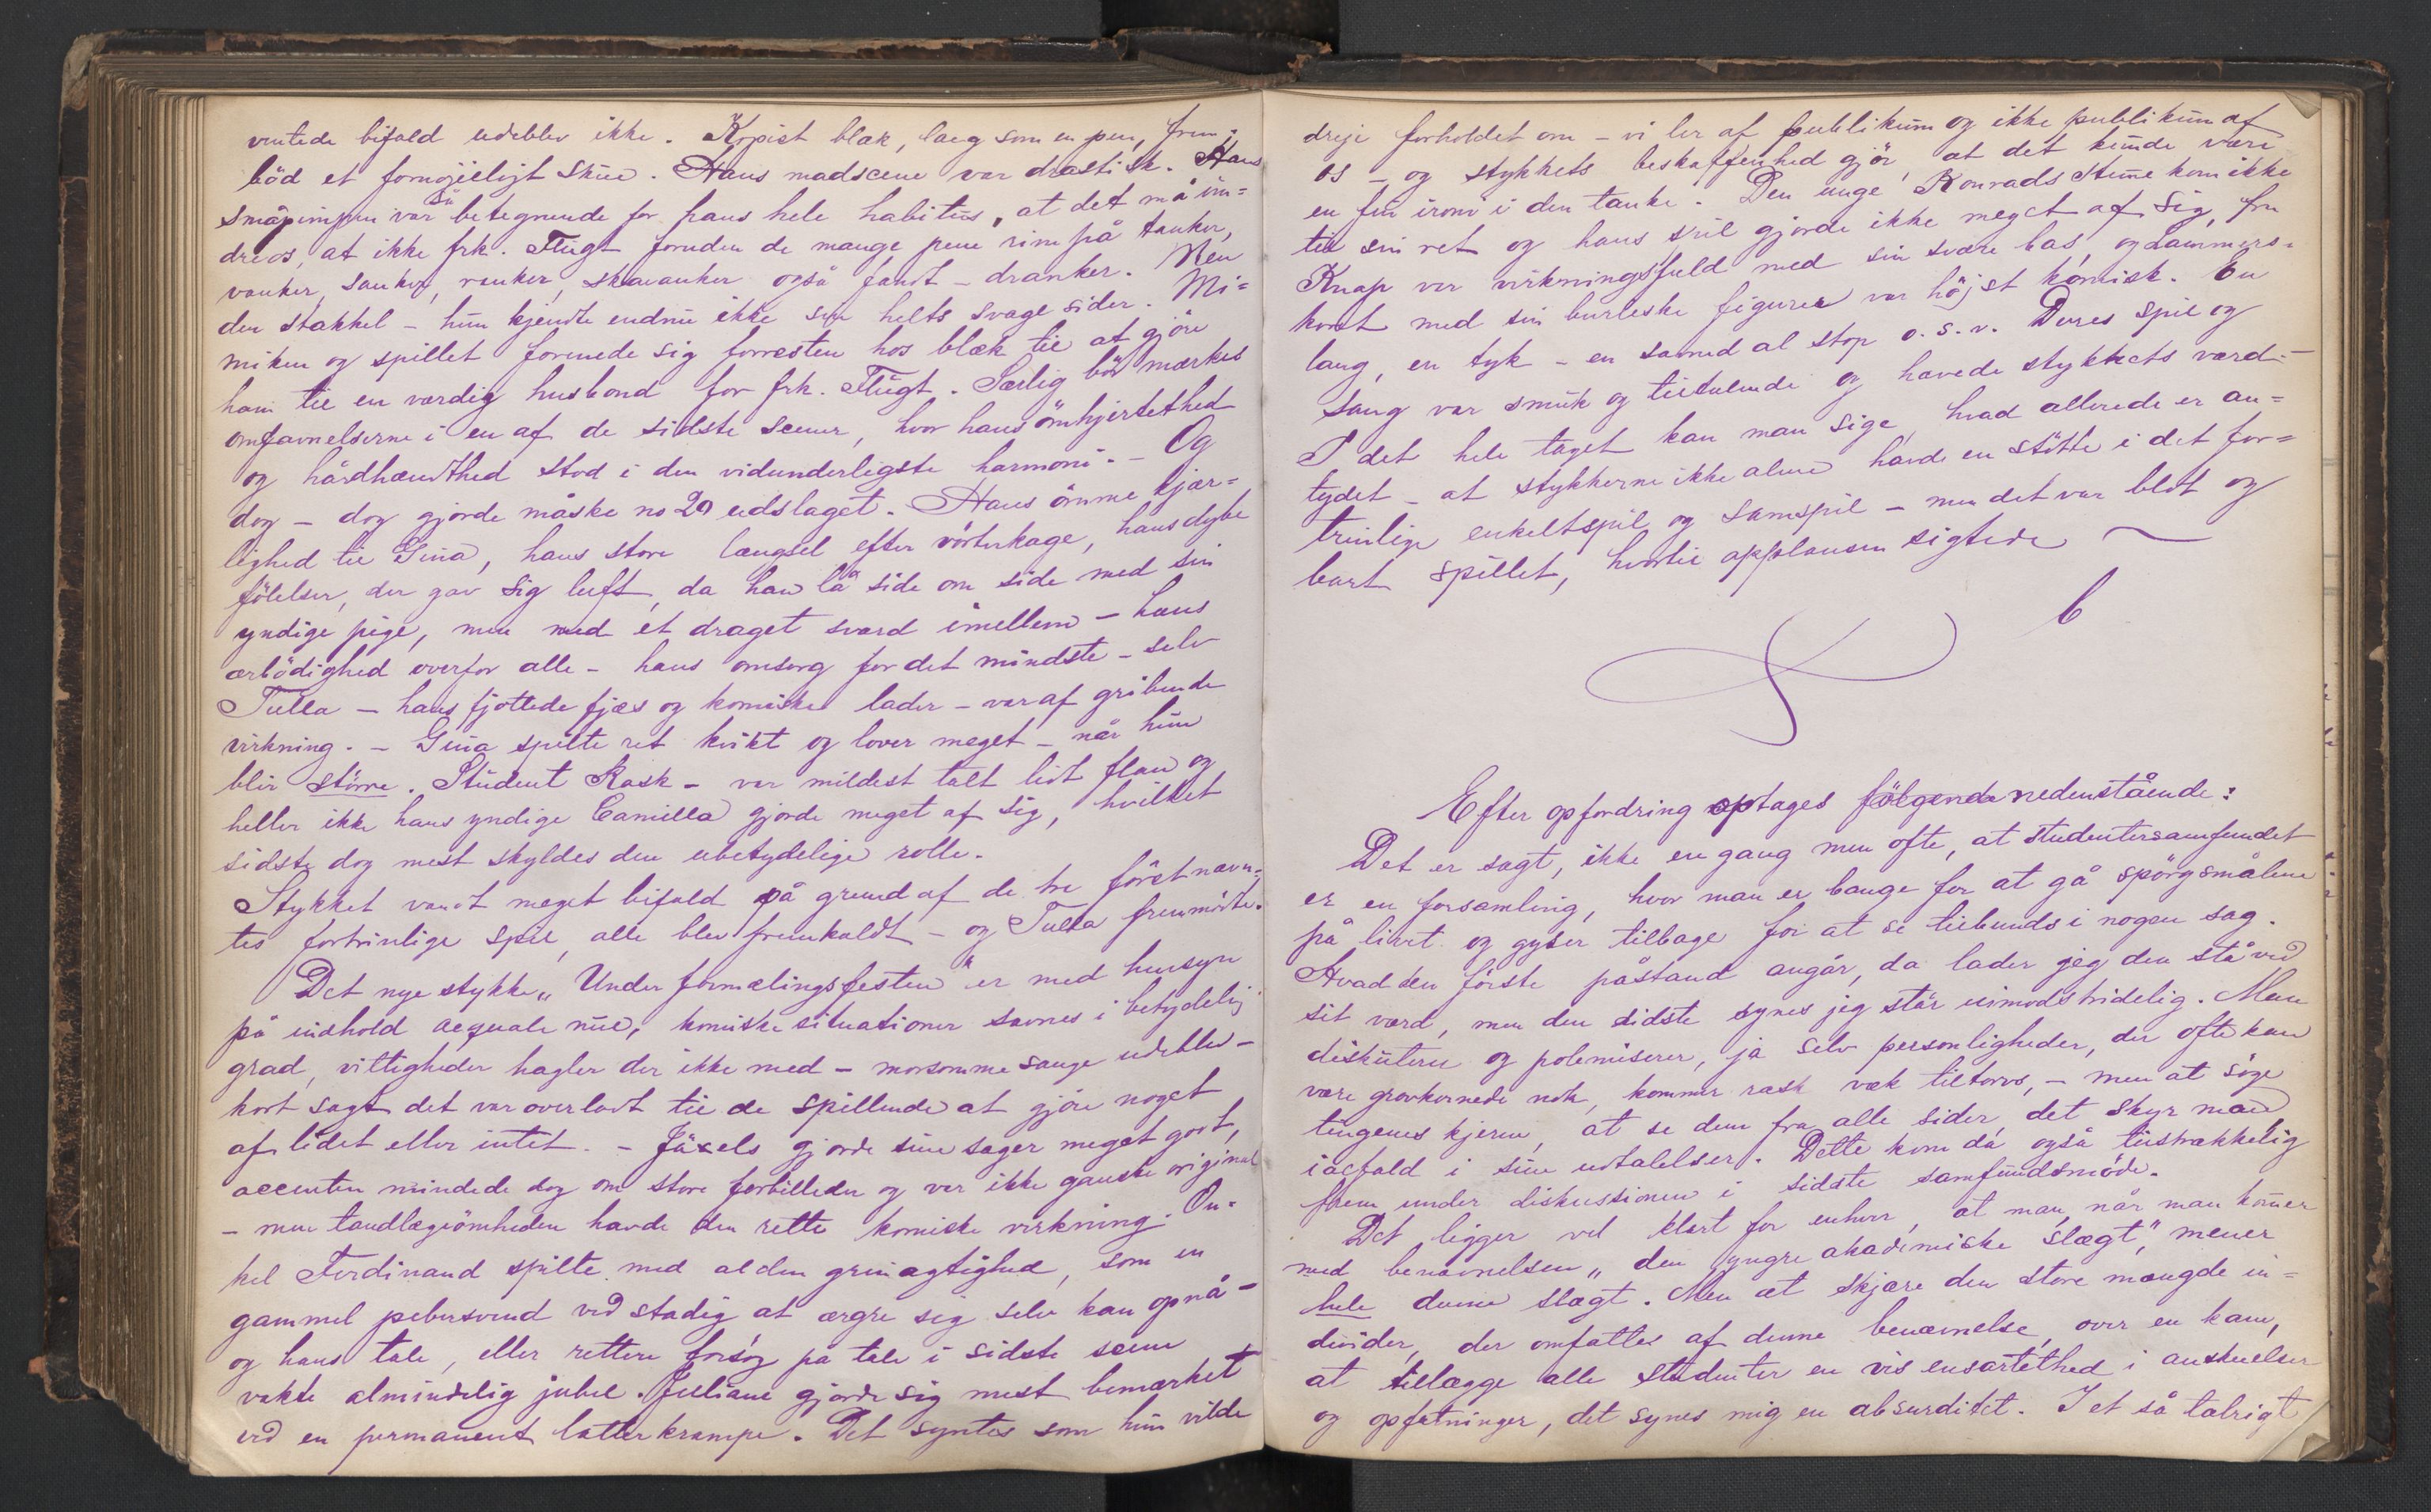 ventede bifald udeblev ikke. Kopist blæk, lang som en pen, frem-
böd et fornöjeligt skue. Hans madscene var drastisk. Hans
småpimpen var så betegnende for hans hele habitus, at det må un=
dre os, at ikke frk. Flügt foruden de mange pene rim på tanker,
vanker, sanker, ranker, skavanker også fandt - dranker. Men
den stakkel - hun kjendte endnu ikke sin helts svage sider. Mi=
miken og spillet forenede sig forresten hos blæk til at gjöre
ham til en værdig husbond for frk. Flügt. Særlig bör mærkes
omfavnelserne i en af de sidste scener, hvor hans ömhjertethed
og hårdhændthed stod i den vidunderligste harmoni. - Og
dog - dog gjorde måske no 20 udslaget. Hans ömme kjær=
lighed til Gina, hans store længsel efter vörterkage, hans dybe
fölelser, der gav sig luft, da han lå side om side med sin
yndige pige, men med et draget sværd imellem - hans
ærbödighed overfor alle - hans omsorg for det mindste - selv
Tulla - hans fjottede fjæs og komiske lader - var af gribende
virkning. - Gina spilte ret kvikt og lover meget - når hun
blir större. Student Rask - var mildest talt lidt flau og
heller ikke hans yndige Camilla gjorde meget af sig, hvilket
sidste dog mest skyldes den ubetydelige rolle.
Stykket vandt meget bifald på grund af de tre förstnævn=
tes fortrinlige spil, alle blev fremkaldt - og Tulla fremmödte.
Det nye stykke „Under formælingsfesten" er med hensyn
på indhold aequale nul, komiske situationer savnes i betydelig
grad, vittigheder hagler der ikke med - morsomme sange udeblev -
kort sagt det var overladt til de spillende at gjöre noget
af lidet eller intet. - Juxels gjorde sine sager meget godt,
accenten mindede dog om store forbilleder og var ikke ganske original
- men tandlægeömheden havde den rette komiske virkning. On=
kel Ferdinand spilte med al den grinagtighed, som en
gammel pebersvend ved stadig at ærgre sig selv kan opnå -
og hans tale, eller rettere forsög på tale i sidste scene
vakte almindelig jubel. Juliane gjorde sig mest bemærket
ved en permanent latterkrampe. Det syntes som hun vilde
dreje forholdet om - vi ler af publikum og ikke publikum af
os - og stykkets beskaffenhed gjör, at det kunde være
en fin ironi i den tanke. Den unge Konrads stemme kom ikke
til sin ret og hans spil gjorde ikke meget af sig, fru
Knap var virkningsfuld med sin svære bas, og Lammers-
kort med sin burleske figurer var höjst komisk. En
lang, en tyk - en sammel al stop o.s.v. Deres spil og
sang var smuk og tiltalende og hævede stykkets værd. -
I det hele taget kan man sige, hvad allerede er an=
tydet - at stykkerne ikke alene havde en stötte i det for=
trinlige enkeltspil og samspil - men det var blot og
bart spillet, hvortil applausen sigtede ~
b
Efter opfordring optages fölgende nedenstående:
Det er sagt, ikke en gang men ofte, at studentersamfundet
er en forsamling, hvor man er bange for at gå spörgsmålene
på livet og gyser tilbage for at se tilbunds i nogen sag.
Hvad den förste påstand angår, da lader jeg den stå ved
sit værd, men den sidste synes jeg står uimodstridelig. Man
diskuterer og polemiserer, ja selv personligheder, der ofte kan
være grovkornede nok, kommer rask væk tiltorvs, - men at söge
tingenes kjerne, at se dem fra alle sider, det skyr man
iacfald i sine udtalelser. Dette kom da også tilstrækkelig
frem under diskussionen i sidste samfundsmöde.
Det ligger vel klart for enhver, at man, når man komer
med benævnelsen „den yngre akademiske slægt", mener
hele denne slægt. Men at skjære den store mængde in=
divider, der omfattes af denne benævnelse, over en kam,
at tillægge alle studenter en vis ensartethed i anskuelser
og opfatninger, det synes mig en absurditet. I et så talrigt